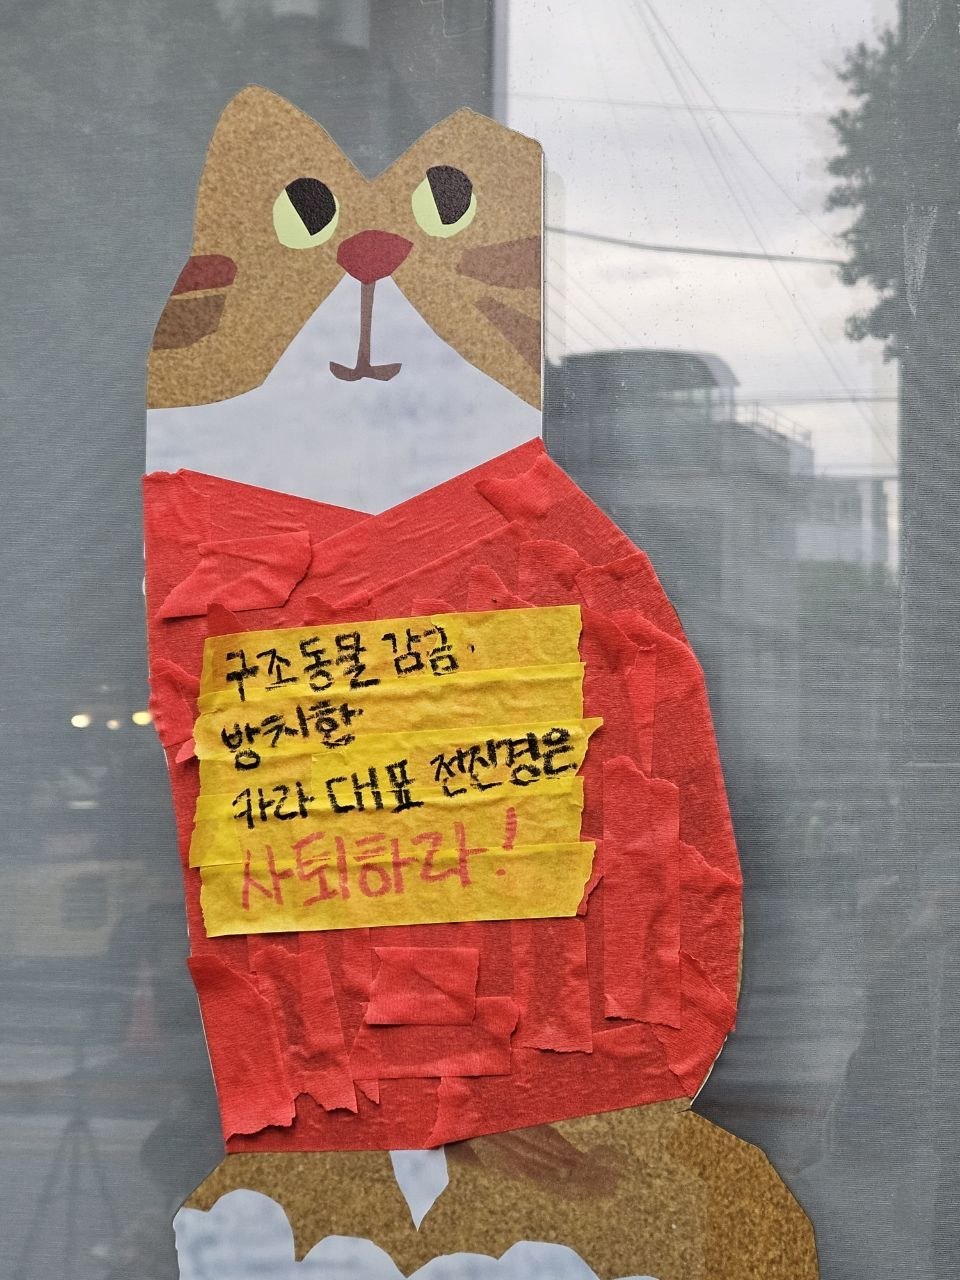 구조동물 감금·
방치한
카라 대표 전진경은
사퇴하라!